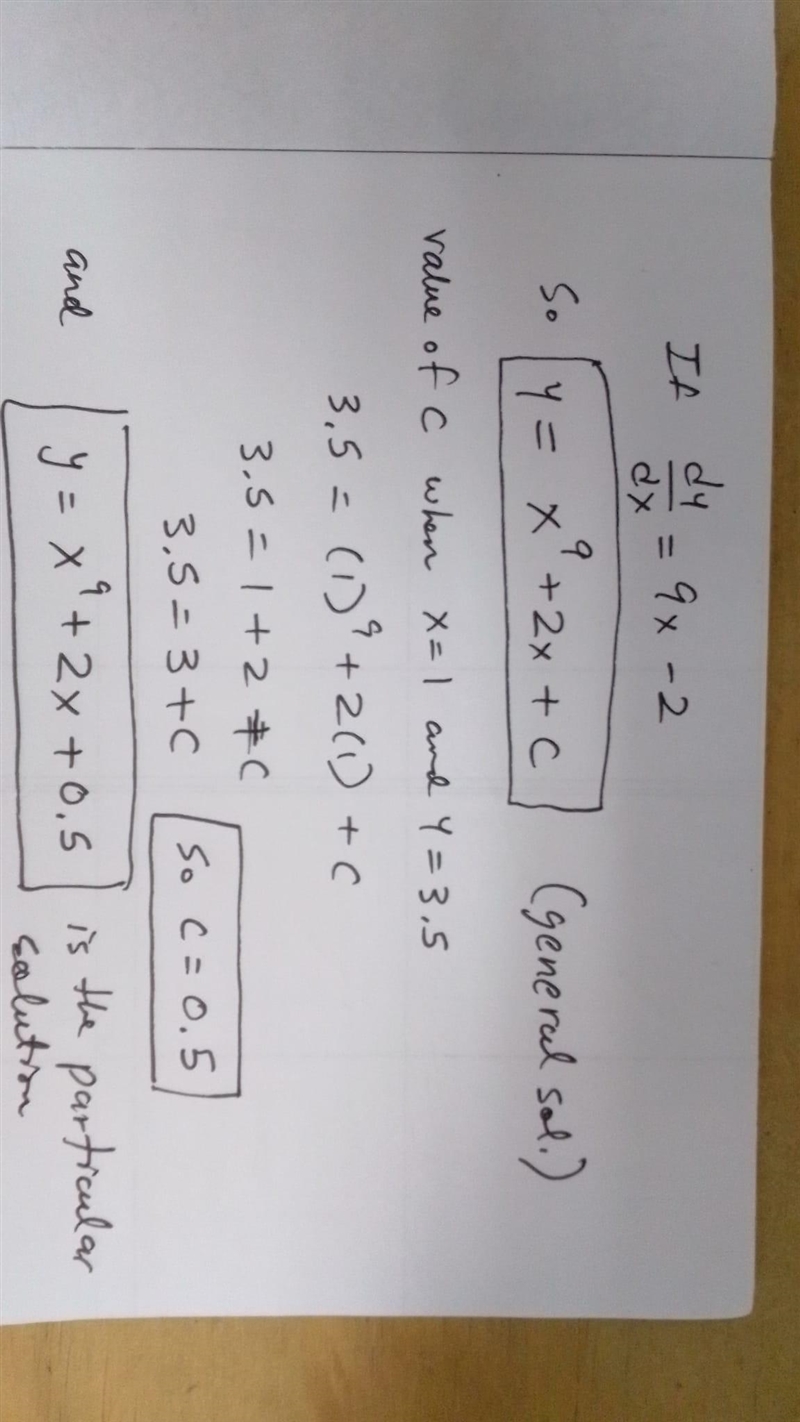 If dy/dx = 9x - 2
So y = x⁹ + 2x + c (general sol.)
value of c when x=1 and y=3.5
3.5 = (1)⁹ + 2(1) + c
3.5 = 1 + 2 + c
3.5 = 3 + c So c = 0.5
and y = x⁹ + 2x + 0.5 is the particular
solution